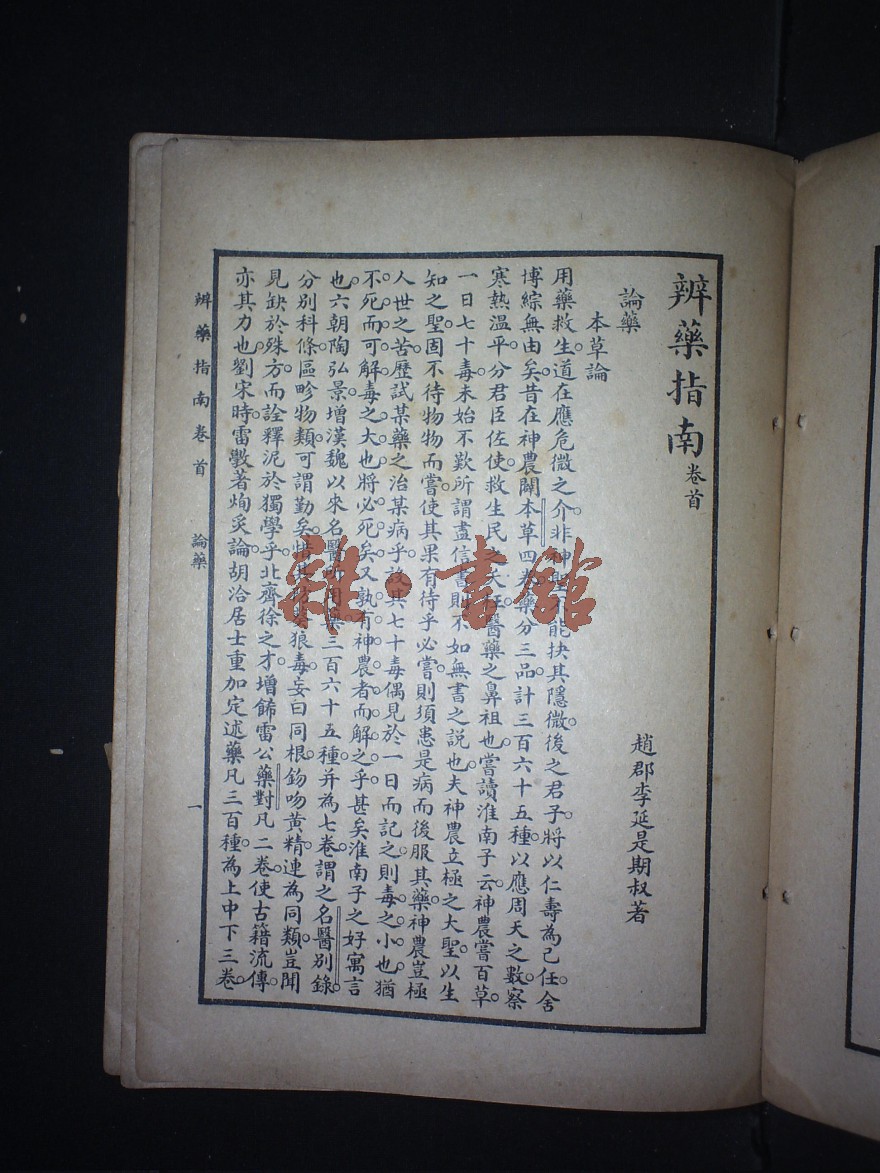 辨藥指南 卷首
趙郡李延是期叔著
論藥
本草論
用藥救生。道在應危微之介。非神聖不能抉其隱微。後之君子。將以仁壽為己任。舍
博綜無由矣。昔在神農。闢本草四卷。藥分三品。計三百六十五種。以應周天之數。察
寒熱溫平。分君臣佐使。救生民之夭枉。醫藥之鼻祖也。嘗讀淮南子云。神農嘗百草。
一日七十毒。未始不歎所謂盡信書則不如無書之說也。夫神農立極之大聖。以生
知之聖。固不待物物而嘗。使其果有待乎必嘗。則須患是病而後服其藥。神農豈極
人世之苦。歷試某藥之治某病乎。設其七十毒偶見於一日而記之。則毒之小也。猶
不死而可解。毒之大也。將必死矣。又孰有神農者而解之乎。甚矣淮南子之好寓言
也。六朝陶弘景增漢魏以來名醫所用藥三百六十五種。并為七卷。謂之名醫別錄。
分別科條。區畛物類。可謂勤矣。惜狼毒。妄曰同根。鈎吻黃精。連為同類。豈聞
見缺於殊方。而詮釋泥於獨學乎。北齊徐之才。增飾雷公藥對凡二卷。使古籍流傳。
亦其力也。劉宋時。雷斅著炮炙論。胡洽居士重加定述。藥凡三百種。為上中下三卷。
辨藥指南卷首 論藥 一
雜·書館